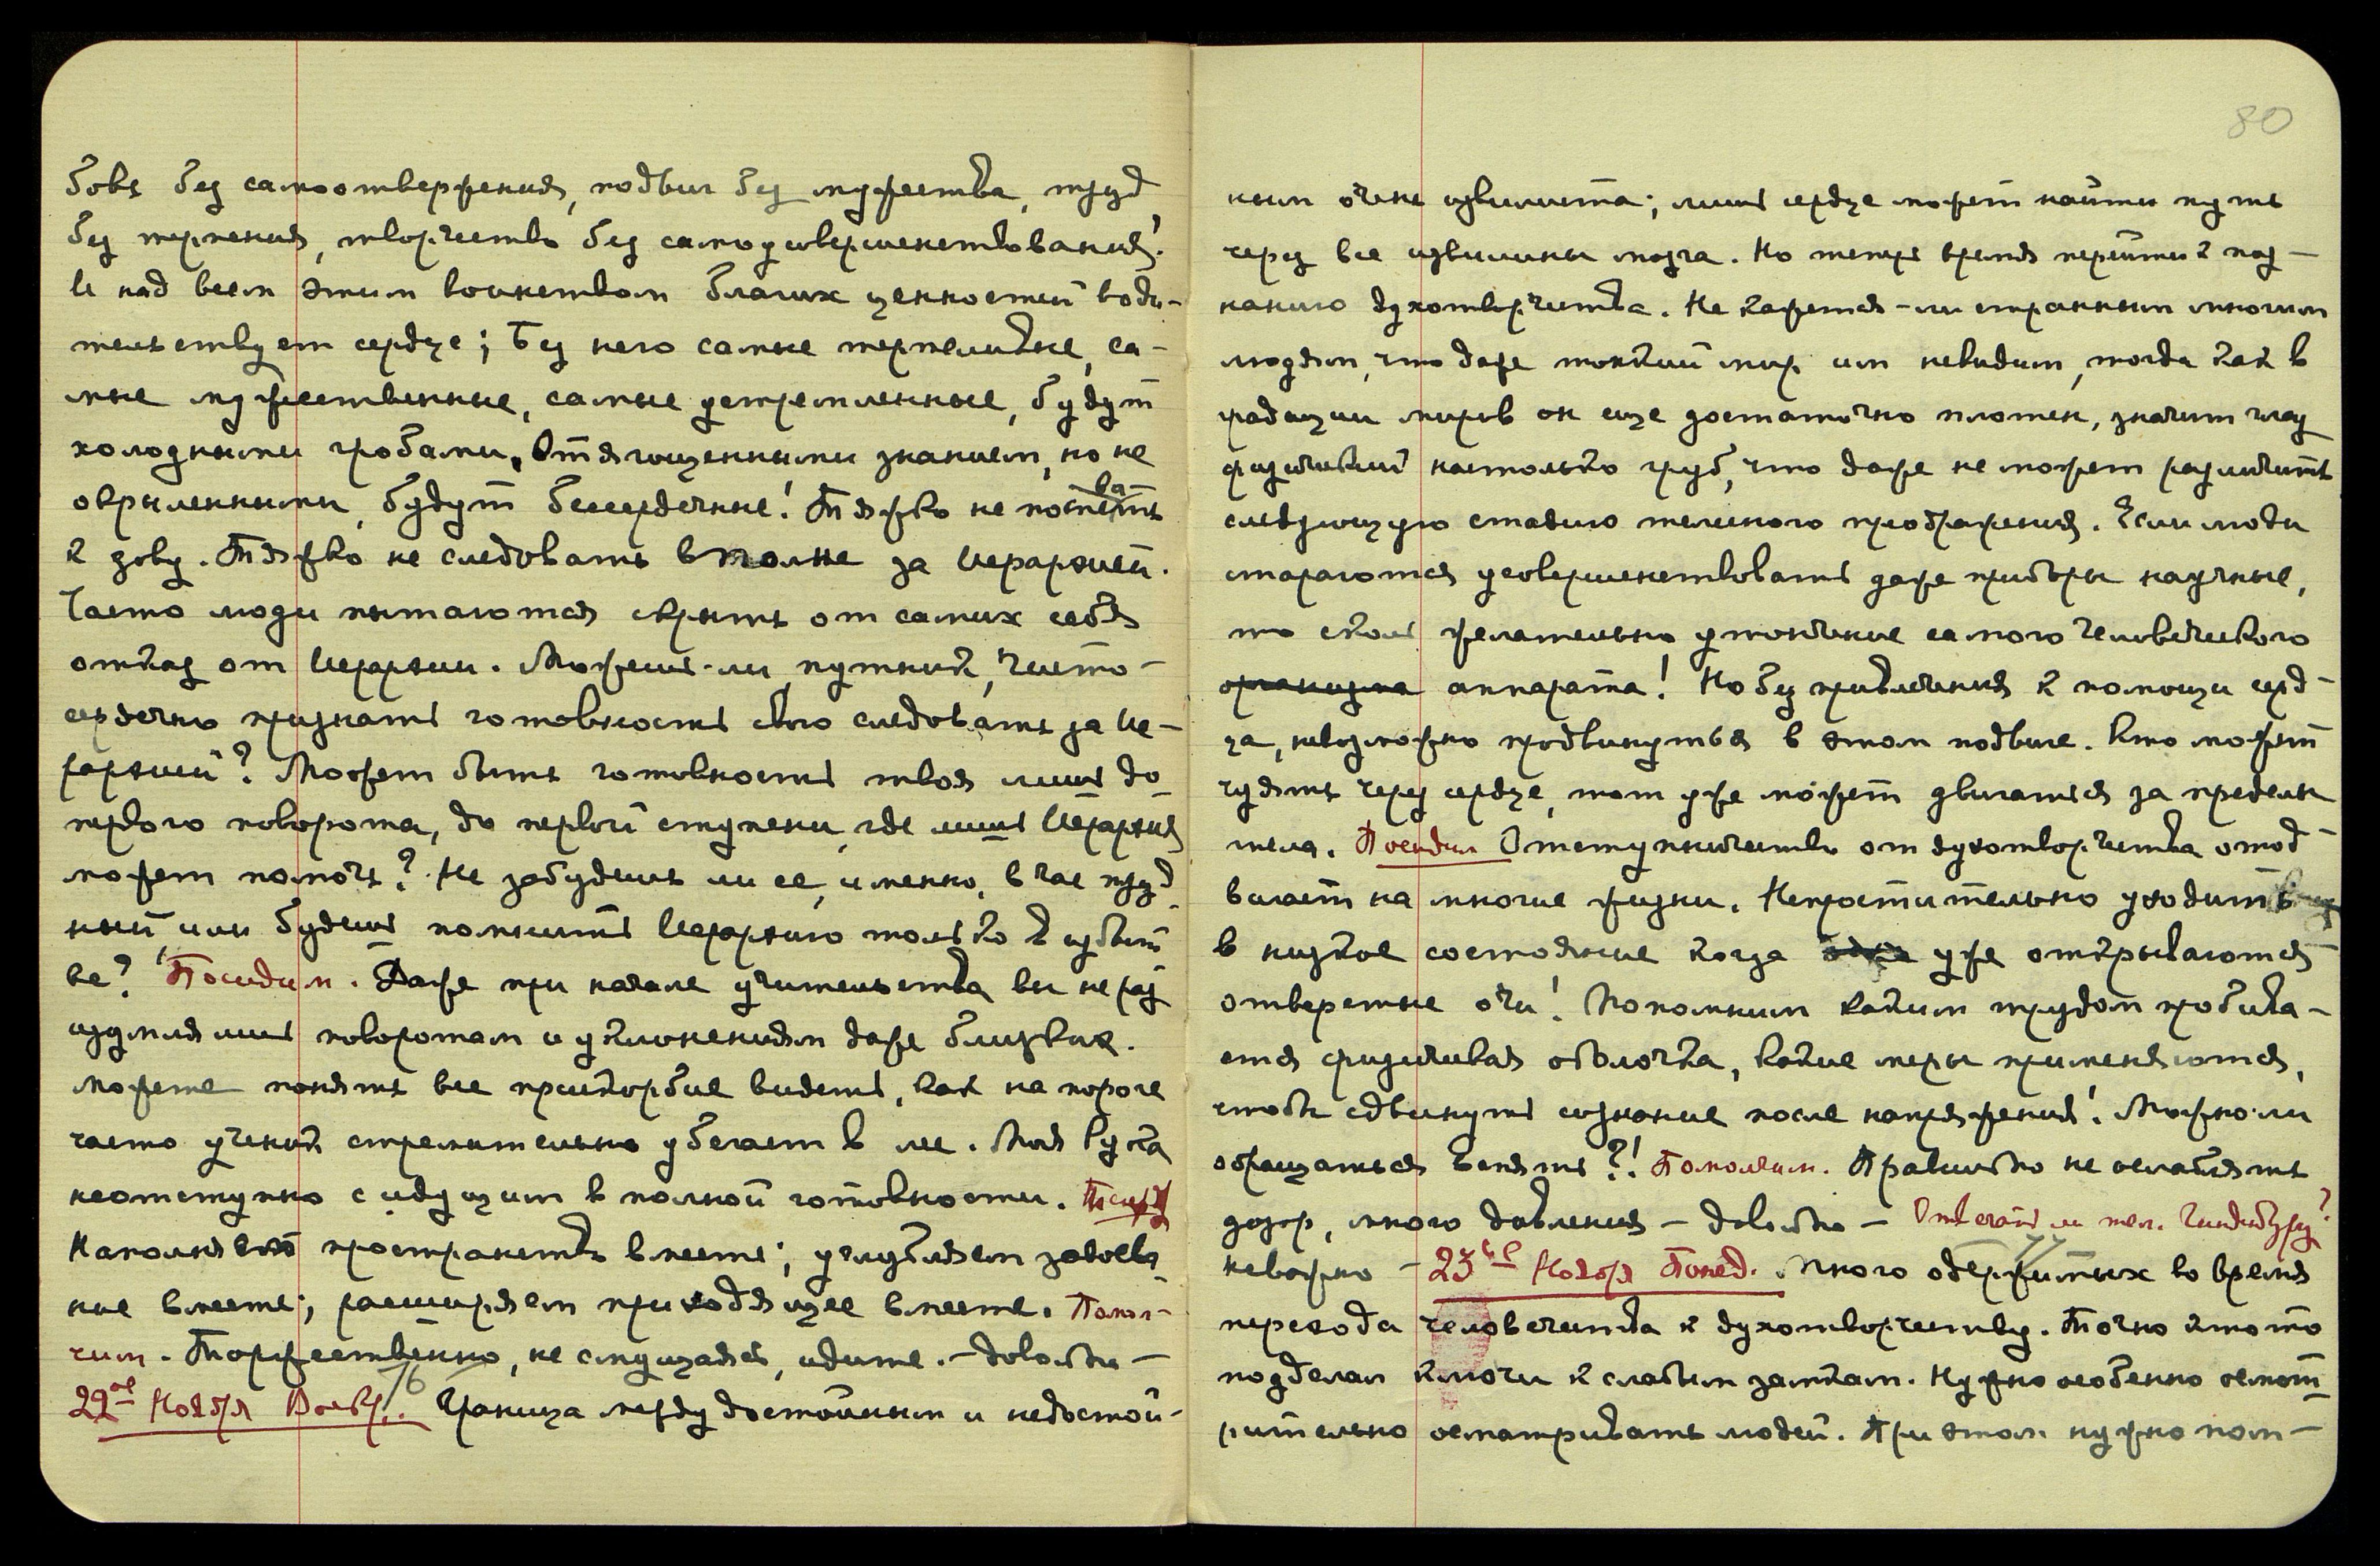 бовь без самоотвержения, подвиг без мужества, труд
без терпения, творчество без самоусовершенствования!
И над всем этим воинством благих ценностей води-
тельствует сердце; Без него самые терпеливые, са-
мые мужественные, самые устремленные, будут
холодными гробами. Отягощенными знанием, но не
окрыленными, будут бессердечные! Тяжко не поспе
ва-
ть
к зову. Тяжко не следовать вполне за Иерархией.
Часто люди пытаются скрыть от самих себя
отказ от Иерархии. Можешь-ли, путник, чисто-
сердечно признать готовность свою следовать за Ие-
рархией? Может быть готовность твоя лишь до
первого поворота, до первой ступени, где лишь Иерархия
может помочь? Не забудешь ли ее, именно, в час труд-
ный, или будешь помнить Иерархию только в избыт
ке? Посидим. Даже при начале учительства вы не раз
изумлялись поворотам и уклонениям даже близких.
Можете понять все прискорбие видеть, как на пороге
часто ученик стремительно убегает в лес. Моя Рука
неотступно с идущим в полной готовности.
Наполняем пространство вместе; углубляем
ние вместе; расширяем приходящее вместе. Помол-
чим. Торжественно, не смущаясь, идите. — довольно —
76
22ое Ноября Воскр. Граница между достойным и недостой-
80
ным очень извилиста; лишь сердце может найти путь
через все извилины мозга. Но теперь время перейти к поз-
нанию духотворчества. Не кажется-ли странным многим
людям, что даже тонкий мир им невидим, тогда как в
градации миров он еще достаточно плотен, значит глаз
физический настолько груб, что даже не может различить
следующую стадию телесного преображения. Если люди
стараются усовершенствовать даже приборы научные,
то сколь желательно утончение самого человеческого
организма аппарата! Но без привлечения к помощи серд-
ца, невозможно продвинуться в этом подвиге. Кто может
чуять через сердце, тот уже может двигаться за пределы
тела. Посидим Отступничество от духотворчества отод-
вигает на многие жизни. Непростительно уходить
в низкое состояние когда уже открываются
отверстые очи! Попомним каким трудом пробива-
ется физическая оболочка, какие меры применяются,
чтобы сдвинуть сознание после напряжения! Можно-ли
обращаться вспять?! Помолчим. Правильно не ослаблять
дозор, много давления — довольно — Отвечать ли тел. Гинденбургу?
неважно — 23ье Ноября Понед. Много одержимых во время
77
перехода человечества к духотворчеству. Точно кто-то
подделал ключи к слабым замкам. Нужно особенно осмот-
рительно осматривать людей. При этом нужно пом-